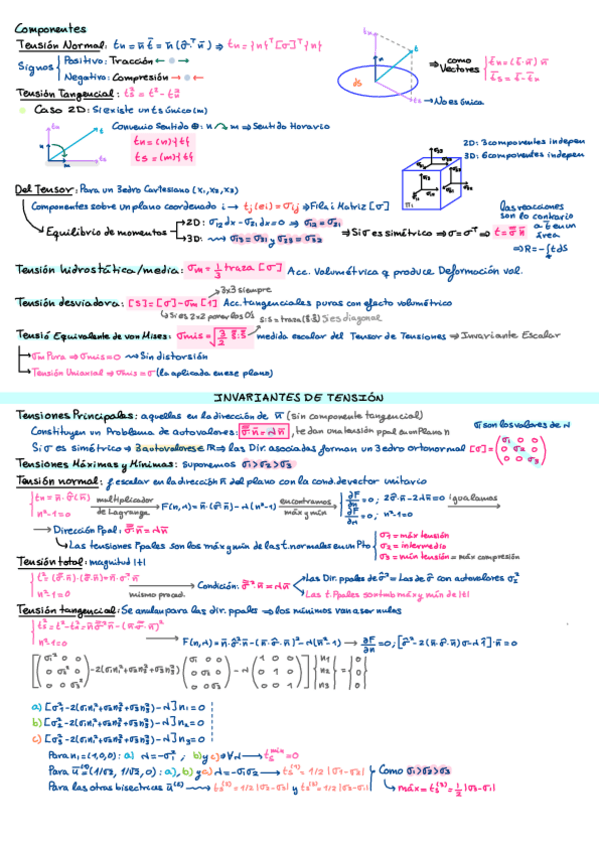 Componentes
Tensión Normal: tn = n̄ t̄ = n̄ (σ̂ᵀ n̄) ⇒ tn = {n}ᵀ[σ]ᵀ{n}
Signos
Positivo: Tracción ← →
Negativo: Compresión → ←
⇒ como Vectores
t̄n = (t̄·n̄) n̄
t̄s = t̄ - t̄n
Tensión Tangencial: ts² = t² - tn²
→ No es única
Caso 2D: Si existe un ts único (m)
Convenio Sentido ⊕: n m ⇒ Sentido Horario
tn = (n){t}
ts = (m){t}
2D: 3 componentes indepen
3D: 6 componentes indepen
Del Tensor: Para un 3edro Cartesiano (x₁, x₂, x₃)
Componentes sobre un plano coordenado i → tj(ei) = σij ⇒ Fila i Matriz [σ]
Equilibrio de momentos
2D: σ12 dx - σ21 dx = 0 ⇒ σ12 = σ21
3D: σ13 = σ31 y σ23 = σ32
⇒ Si σ es simétrico ⇒ σ = σᵀ ⇒ t = σ n̄
las reacciones son lo contario a t en un área
⇒ R = -∫t ds
Tensión hidrostática/media: σm = 1/3 traza [σ] Acc. Volumétrica q produce Deformación vol.
3x3 siempre
Tensión desviadora: [S] = [σ] - σm [1] Acc. tangenciales puras con efecto volumétrico
Si es 2x2 poner los 0s
S:S = traza (S·S) Si es diagonal
Tensió Equivalente de von Mises: σmis = √(3/2 S:S) medida escalar del Tensor de Tensiones ⇒ Invariante Escalar
σm Pura ⇒ σmis = 0 Sin distorsión
Tensión Uniaxial ⇒ σmis = σ (la aplicada en ese plano)
INVARIANTES DE TENSIÓN
Tensiones Principales: aquellas en la dirección de n̄ (sin componente tangencial)
Constituyen un Problema de autovalores: σ n̄ = λ n̄, te dan una tensión ppal en un Plano n
σi son los valores de λ
Si σ es simétrico ⇒ 3 autovalores e ℝ ⇒ las Dir. asociadas forman un 3edro ortonormal [σ] = (σ1 0 0 / 0 σ2 0 / 0 0 σ3)
Tensiones Máximas y Mínimas: suponemos σ1 > σ2 > σ3
Tensión normal: f escalar en la dirección n̄ del plano con la cond. de vector unitario
tn = n̄·σ̂(n̄)
n² - 1 = 0
multiplicador de Lagrange
F(n,λ) = n̄(σ̂·n̄) - λ(n² - 1)
encontramos máx y mín
∂F/∂n = 0; 2σ̂·n̄ - 2λn̄ = 0
∂F/∂λ = 0; n² - 1 = 0
igualamos
→ Dirección Ppal: σ·n̄ = λn̄
Las tensiones Ppales son los máx y mín de las t. normales en un Pto
σ1 = máx tensión
σ2 = intermedio
σ3 = mín tensión = máx compresión
Tensión total: magnitud |t|
t² (σ̂·n̄)·(σ̂·n̄) = n̄·σ̂²·n̄
n² - 1 = 0
mismo proced.
Condición: σ̂²·n̄ = λn̄
Las Dir. ppales de σ̂² = Las de σ̂ con autovalores σi²
Las t. Ppales son tb máx y mín de |t|
Tensión tangencial: Se anulan para las dir. ppales ⇒ los mínimos van a ser nulos
ts² = t² - tn² = n̄ σ̂² n̄ - (n̄·σ̂·n̄)²
n² - 1 = 0
F(n,λ) = n̄·σ̂²·n̄ - (n̄·σ̂·n̄)² - λ(n² - 1) → ∂F/∂n = 0; [σ̂² - 2(n̄·σ̂·n̄)σ̂ - λ1̂]·n̄ = 0
[(σ1² 0 0 / 0 σ2² 0 / 0 0 σ3²) - 2(σ1n1² + σ2n2² + σ3n3²) (σ1 0 0 / 0 σ2 0 / 0 0 σ3) - λ (1 0 0 / 0 1 0 / 0 0 1)] {n1 n2 n3} = {0 0 0}
a) [σ1² - 2(σ1n1² + σ2n2² + σ3n3²) - λ] n1 = 0
b) [σ2² - 2(σ1n1² + σ2n2² + σ3n3²) - λ] n2 = 0
c) [σ3² - 2(σ1n1² + σ2n2² + σ3n3²) - λ] n3 = 0
Para n1 = (1,0,0): a) λ = -σ1²; b) y c) ∀λ → ts mín = 0
Para n̄⁽¹⁾ = (1/√2, 1/√2, 0): a), b) y c) λ = -σ1σ2 → ts⁽¹⁾ = 1/2 |σ1 - σ2|
Como σ1 > σ2 > σ3
Para las otras bisectrices n̄⁽²⁾ ts⁽²⁾ = 1/2 |σ2 - σ3| y ts⁽³⁾ = 1/2 |σ3 - σ1|
máx = ts⁽³⁾ = 1/2 |σ3 - σ1|